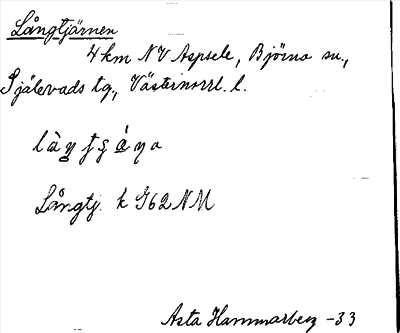 Långtjärnen
4 km NV Aspsele, Björna sn.,
Själevads tg., Västernorrl. l.
Långtj. k G62 NM
Asta Hammarberg -33